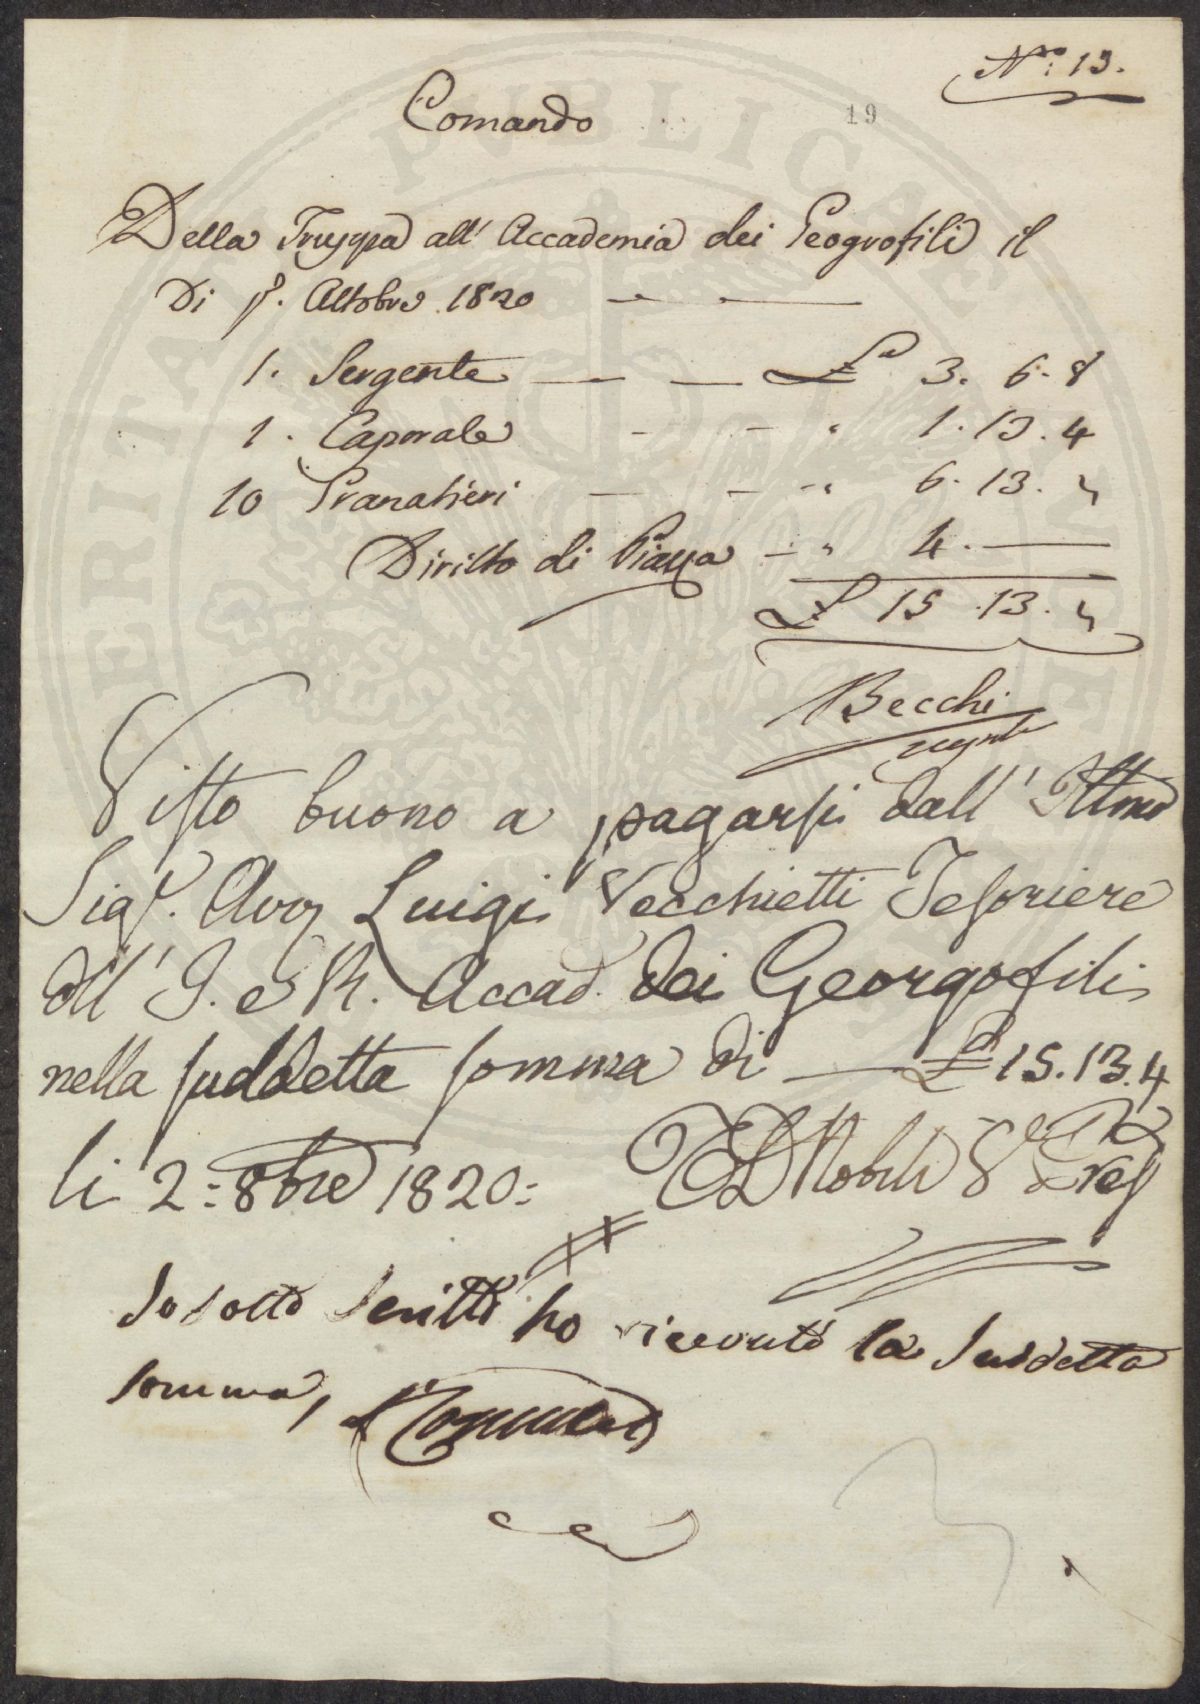 N.ro 13.
19
Comando
Della Truppa all' Accademia dei Geogrofili il
Di p.o Attobre 1820
1. Sergente — — £ 3. 6. 8
1. Caporale - - " 1. 13. 4
10 Granatieri — - - " 6. 13. 4
Diritto di Piazza - " 4. —
£ 15. 13. 4
Becchi
Visto buono a pagarsi dall' Illmo
Sigr. Avv Luigi Vecchietti Tesoriere
dll' I. e R. Accad. dei Georgofili
nella suddetta somma di — £ 15. 13. 4
li 2 = 8bre 1820 =
Io sotto Scritto ho ricevuto la Suddetta
somma,